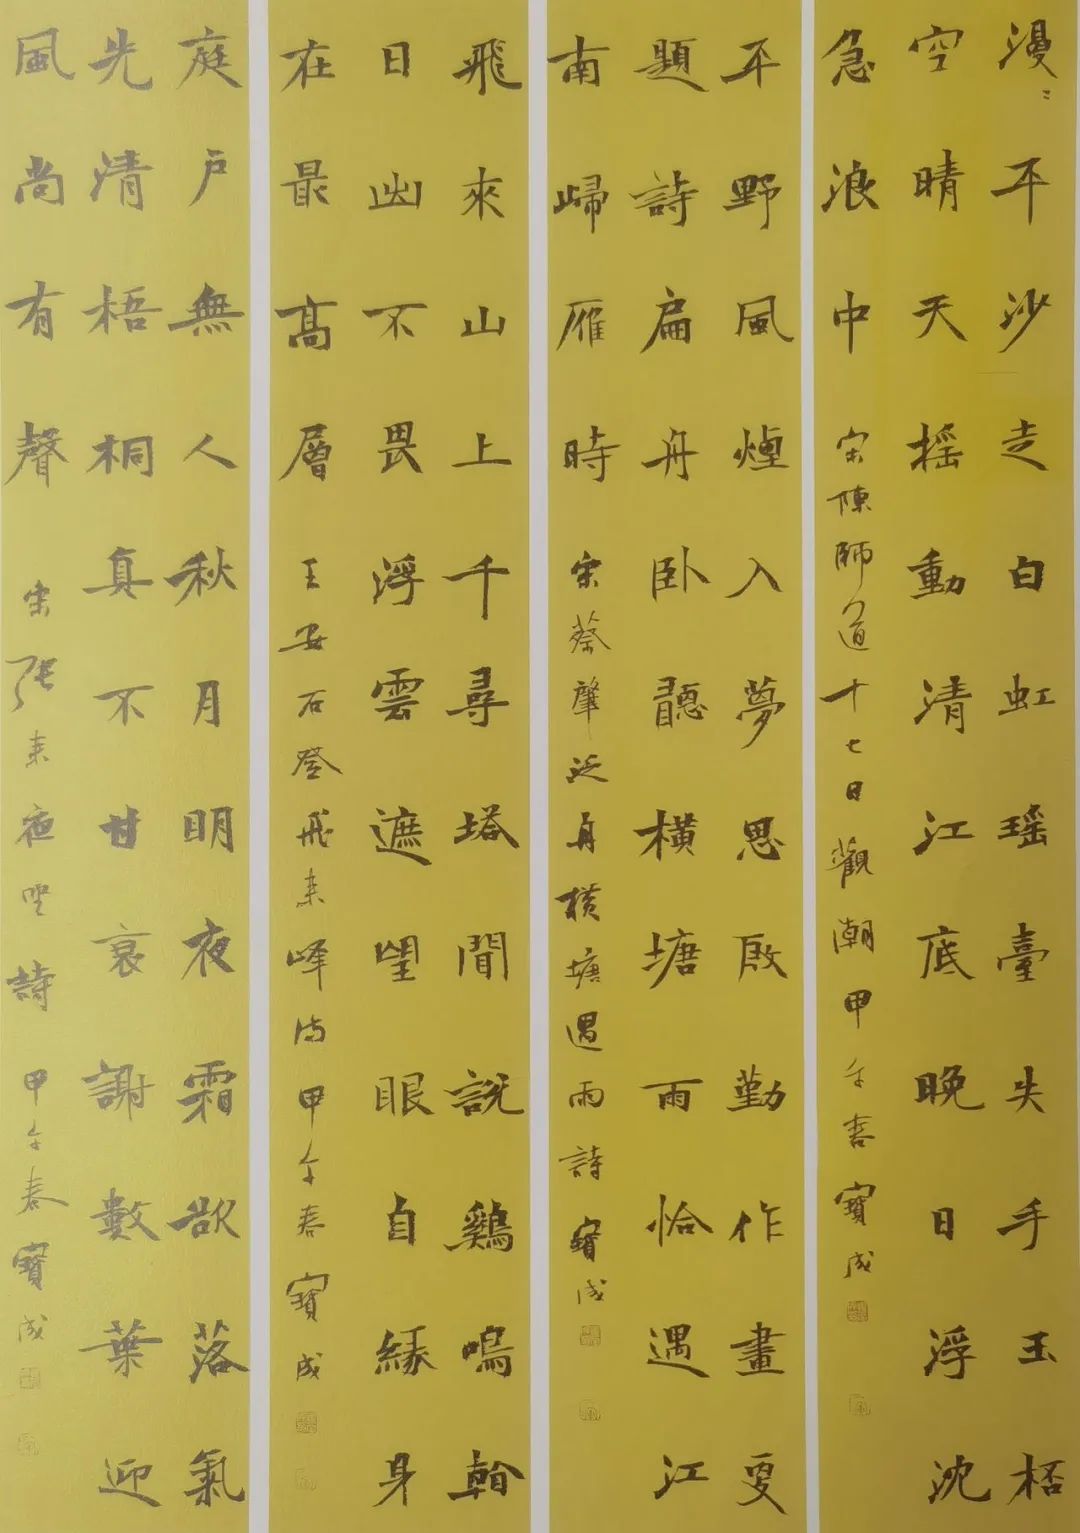 漫〻平沙走白虹瑶臺失手玉桮
空晴天摇動清江底晚日浮沈
急浪中 宋陳師道十七日觀潮甲午春寶成
平野風煙入夢思殷勤作畫更
題詩扁舟卧聽橫塘雨恰遇江
南歸雁時 宋蔡肇泛舟橫塘遇雨詩寶成
飛來山上千尋塔聞說鷄鳴
日出不畏浮雲遮望眼自緣身
在最高層 王安石登飛來峰詩甲午春寶成
庭戶無人秋月明夜霜欲落氣
先清梧桐真不甘衰謝數葉迎
風尚有聲 宋張耒夜坐詩甲午春寶成